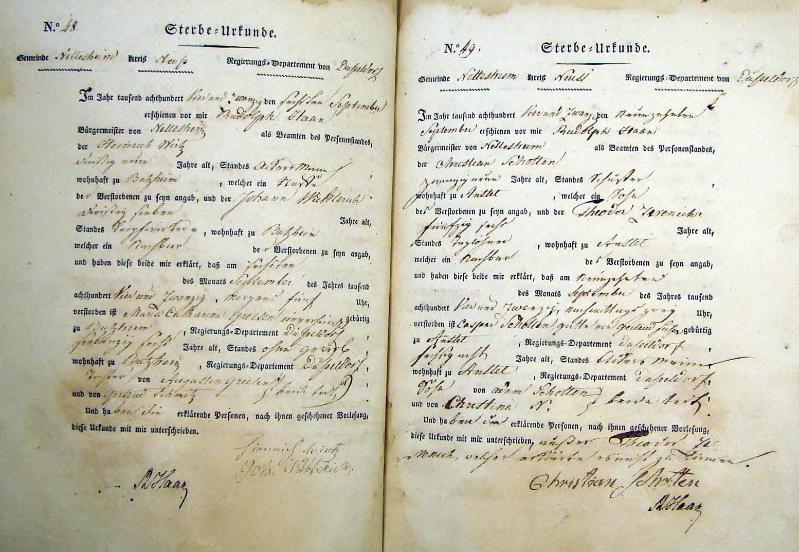 N.º 48.
Sterbe-Urkunde.
Gemeinde Nettesheim Kreis Neuss Regierungs-Departement von Düsseldorf
Im Jahr tausend achthundert Vier und Zwanzig den September
erschienen vor mir Rudolph Haan
Bürgermeister von Nettesheim als Beamten des Personenstandes,
der Heinrich
dreissig neun Jahre alt, Standes Ackersmann
wohnhaft zu Butzheim, welcher ein
der Verstorbenen zu seyn angab, und der Johann
dreissig sieben Jahre alt,
Standes, wohnhaft zu Butzheim
welcher ein Nachbar der Verstorbenen zu seyn angab,
und haben diese beide mir erklärt, daß am
des Monats September des Jahres tausend
achthundert Vier und Zwanzig, Morgens fünf Uhr,
verstorben ist Maria Catharina gebürtig
zu Butzheim, Regierungs-Departement Düsseldorf,
siebenzig sechs Jahre alt, Standes ohne Gewerb
wohnhaft zu Butzheim, Regierungs-Departement Düsseldorf,
Tochter von
und von beide todt
Und haben die erklärende Personen, nach ihnen geschehener Vorlesung,
diese Urkunde mit mir unterschrieben.
Haan
N.º 49.
Sterbe-Urkunde.
Gemeinde Nettesheim Kreis Neuss Regierungs-Departement von Düsseldorf
Im Jahr tausend achthundert Vier und Zwanz. den Neunzehnten
September erschienen vor mir Rudolph Haan
Bürgermeister von Nettesheim als Beamten des Personenstandes,
der Christian Schotten
zwanzig neun Jahre alt, Standes Schuster
wohnhaft zu Anstel, welcher ein Sohn
des Verstorbenen zu seyn angab, und der Theodor
fünfzig sechs Jahre alt,
Standes Taglöhner, wohnhaft zu Anstel
welcher ein Nachbar des Verstorbenen zu seyn angab,
und haben diese beide mir erklärt, daß am Neunzehnten
des Monats September des Jahres tausend
achthundert Vier und Zwanzig, nachmittags zwey Uhr,
verstorben ist Caspar Schotten gebürtig
zu Anstel, Regierungs-Departement Düsseldorf,
sechszig acht Jahre alt, Standes Ackersmann
wohnhaft zu Anstel, Regierungs-Departement Düsseldorf
Sohn von Adam Schotten
und von Christina N. beide todt.
Und haben die erklärende Personen, nach ihnen geschehener Vorlesung,
diese Urkunde mit mir unterschrieben, außer Theodor
welcher erklärte
Christian Schotten
Haan